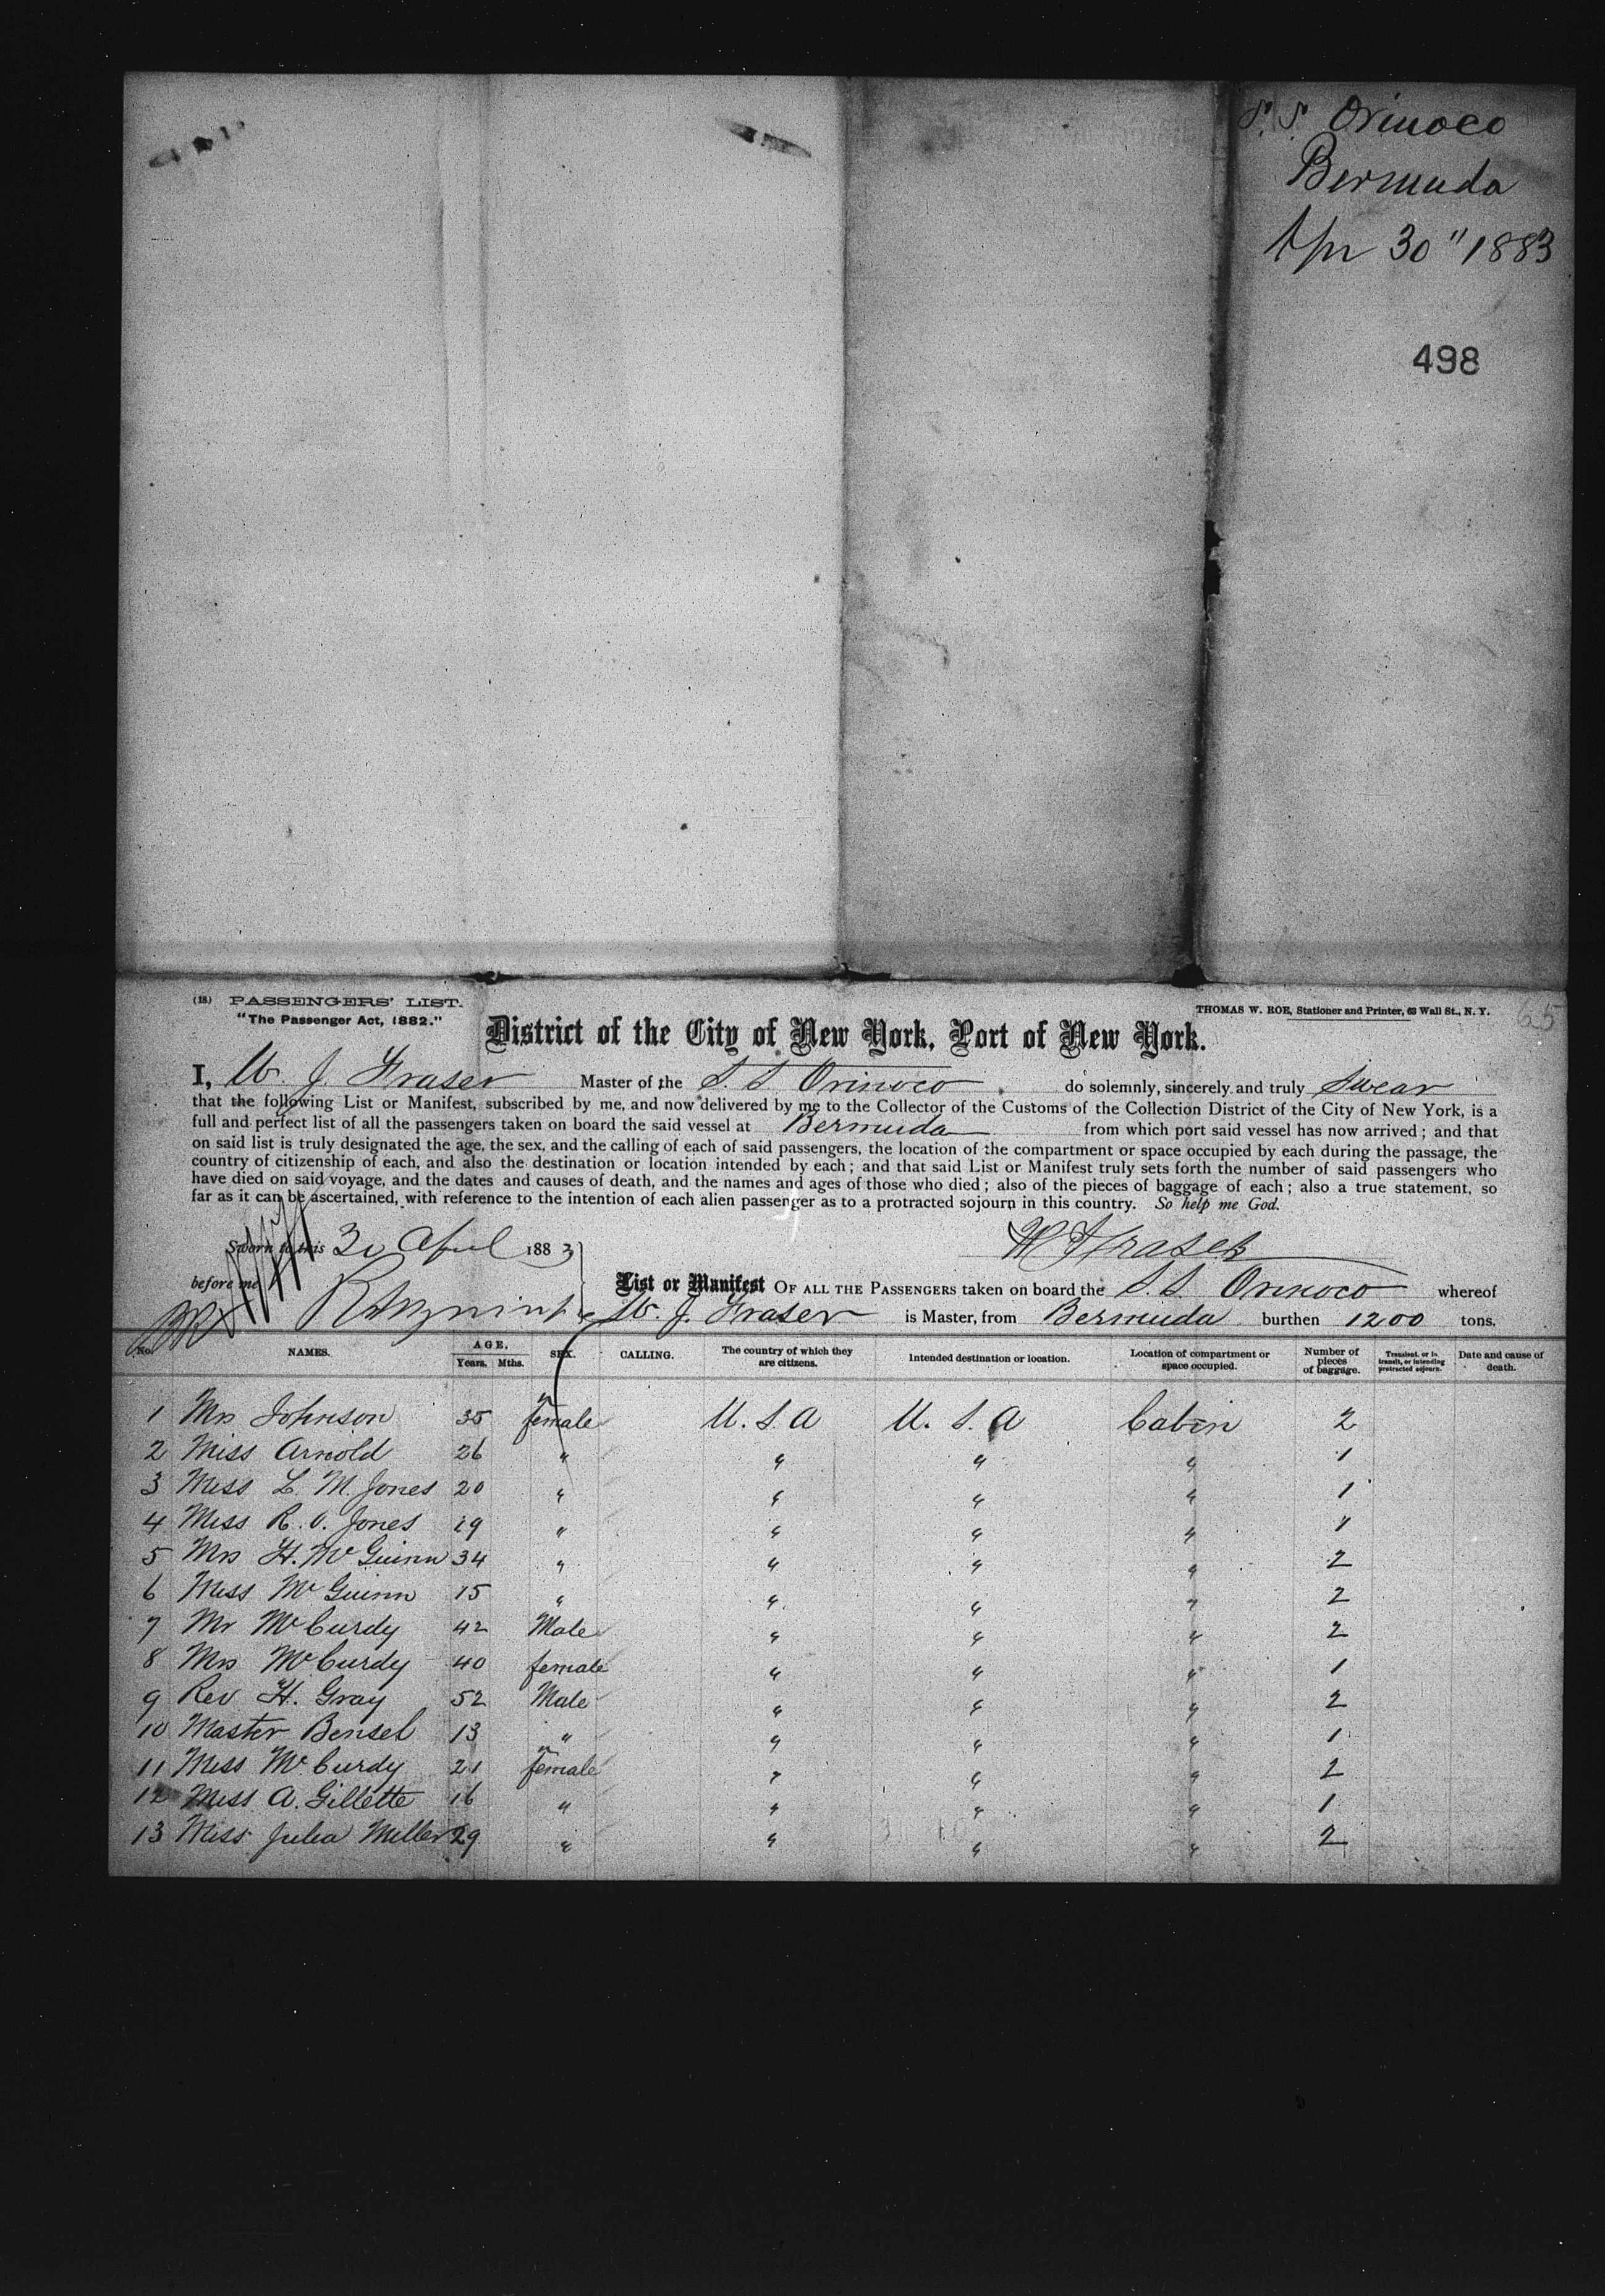 S. S. Orinoco
Bermuda
Apr 30" 1883
498
(18) PASSENGERS' LIST.
"The Passenger Act, 1882."
THOMAS W. ROE, Stationer and Printer, 63 Wall St., N. Y.
65
District of the City of New York, Port of New York.
I, W. J. Fraser Master of the S. S Orinoco do solemnly, sincerely and truly Swear
that the following List or Manifest, subscribed by me, and now delivered by me to the Collector of the Customs of the Collection District of the City of New York, is a
full and perfect list of all the passengers taken on board the said vessel at Bermuda from which port said vessel has now arrived; and that
on said list is truly designated the age, the sex, and the calling of each of said passengers, the location of the compartment or space occupied by each during the passage, the
country of citizenship of each, and also the destination or location intended by each; and that said List or Manifest truly sets forth the number of said passengers who
have died on said voyage, and the dates and causes of death, and the names and ages of those who died; also of the pieces of baggage of each; also a true statement, so
far as it can be ascertained, with reference to the intention of each alien passenger as to a protracted sojourn in this country. So help me God.
Sworn to this 30 April 1883
W J Fraser
before me
List or Manifest OF ALL THE PASSENGERS taken on board the S.S. Orinoco whereof
W. J. Fraser is Master, from Bermuda burthen 1200 tons.
No. NAMES. AGE. Years. Mths. SEX. CALLING. The country of which they are citizens. Intended destination or location. Location of compartment or space occupied. Number of pieces of baggage. Transient, or in transit, or intending protracted sojourn. Date and cause of death.
1 Mrs Johnson 35 female U. S. A U. S. A Cabin 2
2 Miss Arnold 26 " " " " 1
3 Miss L. M. Jones 20 " " " " 1
4 Miss R. O. Jones 19 " " " " 1
5 Mrs H. McGuinn 34 " " " " 2
6 Miss McGuinn 15 " " " " 2
7 Mr McCurdy 42 Male " " " 2
8 Mrs McCurdy 40 female " " " 1
9 Rev H. Gray 52 Male " " " 2
10 Master Bensel 13 " " " " 1
11 Miss McCurdy 21 female " " " 2
12 Miss A. Gillette 16 " " " " 1
13 Miss Julia Miller 29 " " " " 2